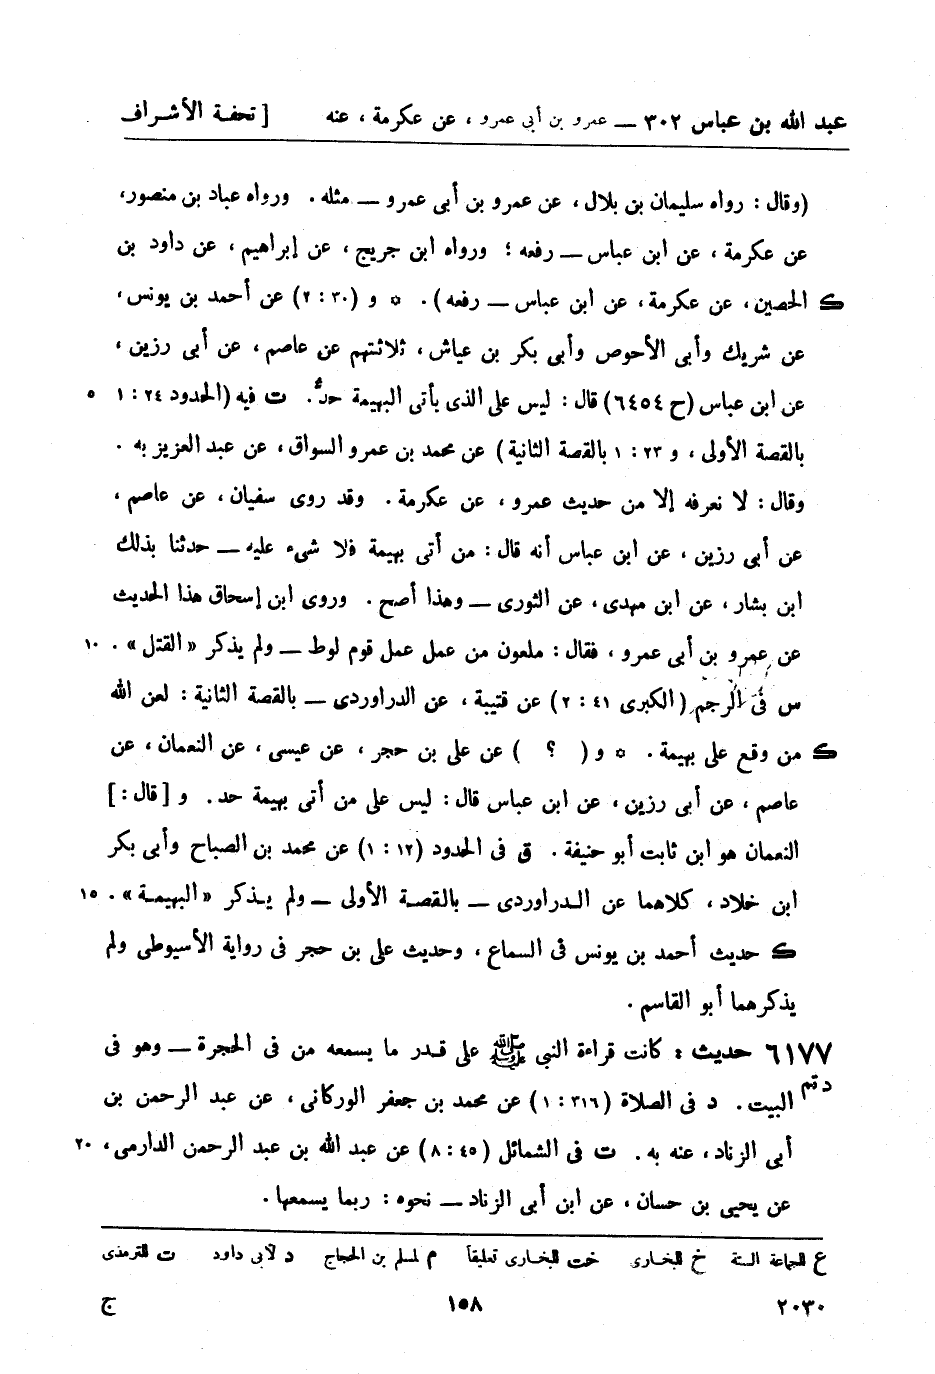 عبد الله بن عباس ٣٠٢ ــ عمرو بن أبى عمرو ، عن عكرمة ، عنه [ تحفة الأشراف
(وقال : رواه سليمان بن بلال ، عن عمرو بن أبى عمرو ــ مثله . ورواه عباد بن منصور،
عن عكرمة ، عن ابن عباس ــ رفعه ؛ ورواه ابن جريج ، عن إبراهيم ، عن داود بن
ك الحصين ، عن عكرمة ، عن ابن عباس ــ رفعه ) . * و (٣٠ : ٢) عن أحمد بن يونس ،
عن شريك وأبى الأحوص وأبى بكر بن عياش ، ثلاثتهم عن عاصم ، عن أبى رزين ،
عن ابن عباس (ح ٦٤٥٤) قال : ليس على الذى يأتى البهيمة حدٌّ . ت فيه (الحدود ٢٤ : ١ ٥
بالقصة الأولى ، و ٢٣ : ١ بالقصة الثانية) عن محمد بن عمرو السواق ، عن عبد العزيز به .
وقال : لا نعرفه إلا من حديث عمرو ، عن عكرمة . وقد روى سفيان ، عن عاصم ،
عن أبى رزين ، عن ابن عباس أنه قال : من أتى بهيمة فلا شىء عليه ــ حدثنا بذلك
ابن بشار ، عن ابن مهدى ، عن الثورى ــ وهذا أصح . وروى ابن إسحاق هذا الحديث
عن عمرو بن أبى عمرو ، فقال : ملعون من عمل عمل قوم لوط ــ ولم يذكر «القتل» . ١٠
س فى الرجم (الكبرى ٤١ : ٢) عن قتيبة ، عن الدراوردى ــ بالقصة الثانية : لعن الله
ك من وقع على بهيمة . * و ( ؟ ) عن على بن حجر ، عن عيسى ، عن النعمان ، عن
عاصم ، عن أبى رزين ، عن ابن عباس قال : ليس على من أتى بهيمة حد . و [ قال : ]
النعمان هو ابن ثابت أبو حنيفة . ق فى الحدود (١٢ : ١) عن محمد بن الصباح وأبى بكر
ابن خلاد ، كلاهما عن الدراوردى ــ بالقصة الأولى ــ ولم يذكر «البهيمة» . ١٥
ك حديث أحمد بن يونس فى السماع ، وحديث على بن حجر فى رواية الأسيوطى ولم
يذكرهما أبو القاسم .
٦١٧٧ حديث : كانت قراءة النبى ﷺ على قدر ما يسمعه من فى الحجرة ــ وهو فى
د تم البيت . د فى الصلاة (٣١٦ : ١) عن محمد بن جعفر الوركانى ، عن عبد الرحمن بن
أبى الزناد ، عنه به . ت فى الشمائل (٤٥ : ٨) عن عبد الله بن عبد الرحمن الدارمى ، ٢٠
عن يحيى بن حسان ، عن ابن أبى الزناد ــ نحوه : ربما يسمعها .
ع للجماعة الستة خ للبخارى خت للبخارى تعليقاً م لمسلم بن الحجاج د لأبى داود ت للترمذى
٢٠٣٠ ١٥٨ ج